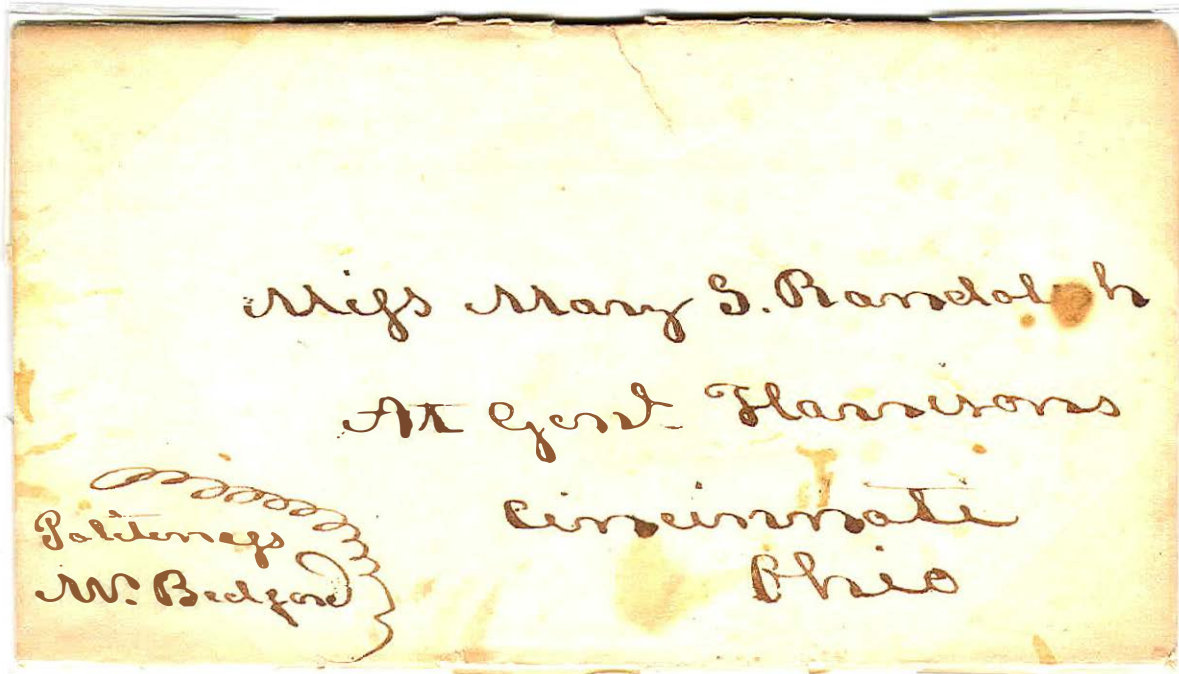 Miss Mary G. Randolph
At Genl. Harrisons
Cincinnati
Ohio
Politeness
Mr. Bedford